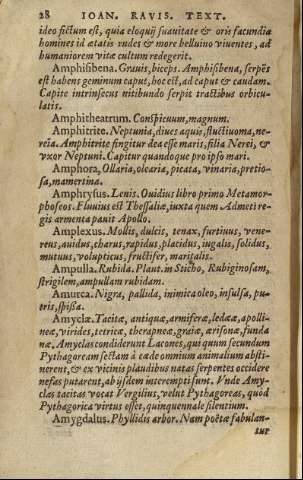 28 IOAN. RAVIS. TEXT.
ideo fictum est, quia eloquij suauitate & oris facundia
homines id ætatis rudes & more belluino viuentes, ad
humaniorem vitæ cultum redegerit.
Amphisibena. Grauis, biceps. Amphisibena, serpēs
est habens geminum caput, hoc est, ad caput & caudam.
Capite intrinsecus nitibundo serpit tractibus orbicu-
latis.
Amphitheatrum. Conspicuum, magnum.
Amphitrite. Neptunia, diues aquis, fluctiuoma, ne-
reia. Amphitrite fingitur dea esse maris, filia Nerei, &
vxor Neptuni. Capitur quandoque pro ipso mari.
Amphora, Ollaria, olearia, picata, vinaria, pretio-
sa, mamertina.
Amphrysus. Lenis. Ouidius libro primo Metamor-
phoseos. Fluuius est Thessaliæ, iuxta quem Admeti re-
gis armenta pauit Apollo.
Amplexus. Mollis, dulcis, tenax, furtiuus, vene-
reus, auidus, charus, rapidus, placidus, iugalis, solidus,
mutuus, volupticus, fructifer, maritalis.
Ampulla. Rubida. Plaut. in Sticho, Rubiginosam,
strigilem, ampullam rubidam.
Amurca. Nigra, pallida, inimica oleo, insulsa, pu-
tris, spissa.
Amyclæ. Tacitæ, antiquæ, armiferæ, ledææ, apolli-
neæ, virides, tetricæ, therapnææ, graiæ, ærisonæ, funda
næ. Amyclas condiderunt Lacones, qui quum secundum
Pythagoream sectam à cæde omnium animalium absti-
nerent, & ex vicinis paludibus natas serpentes occidere
nefas putarent, ab ijsdem interempti sunt. Vnde Amy-
clas tacitas vocat Vergilius, velut Pythagoreas, quòd
Pythagorica virtus esset, quinquennale silentium.
Amygdalus. Phyllidis arbor. Nam poëtæ fabulan-
tur